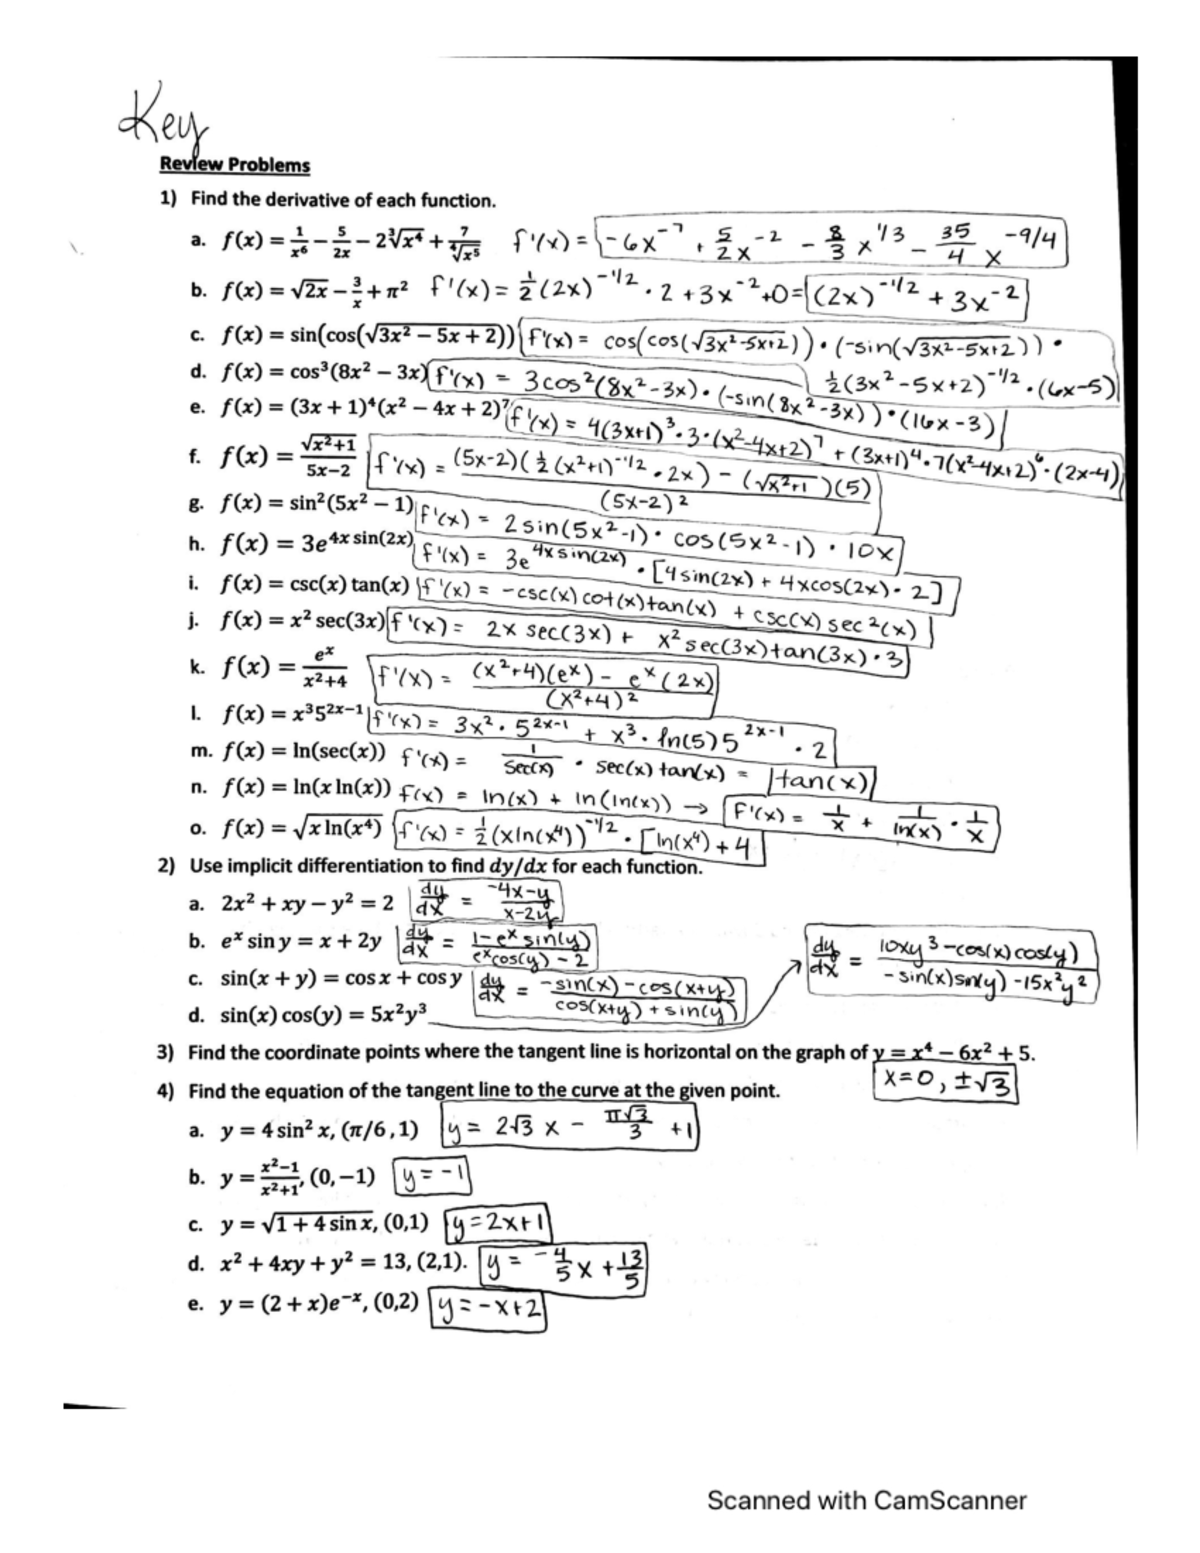 Key
Review Problems
1) Find the derivative of each function.
a. f(x) = 1/x⁶ − 5/2x − 2∛x⁴ + 7/∜x⁵ f'(x) = -6x⁻⁷ + 5/2 x⁻² − 8/3 x^1/3 − 35/4 x^-9/4
b. f(x) = √2x − 3/x + π² f'(x) = ½(2x)^-1/2 · 2 + 3x⁻² + 0 = (2x)^-1/2 + 3x⁻²
c. f(x) = sin(cos(√3x² − 5x + 2)) f'(x) = cos(cos(√3x²-5x+2)) · (-sin(√3x²-5x+2)) ·
½(3x²-5x+2)^-1/2 · (6x-5)
d. f(x) = cos³(8x² − 3x) f'(x) = 3cos²(8x²-3x) · (-sin(8x²-3x)) · (16x-3)
e. f(x) = (3x + 1)⁴(x² − 4x + 2)⁷ f'(x) = 4(3x+1)³·3·(x²-4x+2)⁷ + (3x+1)⁴·7(x²-4x+2)⁶·(2x-4)
f. f(x) = √x²+1/5x−2 f'(x) = (5x-2)(½(x²+1)^-1/2 · 2x) − (√x²+1)(5)/(5x-2)²
g. f(x) = sin²(5x² − 1) f'(x) = 2sin(5x²-1) · cos(5x²-1) · 10x
h. f(x) = 3e^4x sin(2x) f'(x) = 3e^4xsin(2x) · [4sin(2x) + 4xcos(2x)·2]
i. f(x) = csc(x) tan(x) f'(x) = -csc(x)cot(x)tan(x) + csc(x)sec²(x)
j. f(x) = x² sec(3x) f'(x) = 2x sec(3x) + x²sec(3x)tan(3x)·3
k. f(x) = e^x/x²+4 f'(x) = (x²+4)(e^x) − e^x(2x)/(x²+4)²
l. f(x) = x³5^2x−1 f'(x) = 3x² · 5^2x-1 + x³ · ln(5)5^2x-1 · 2
m. f(x) = ln(sec(x)) f'(x) = 1/sec(x) · sec(x)tan(x) = tan(x)
n. f(x) = ln(x ln(x)) f(x) = ln(x) + ln(ln(x)) → f'(x) = 1/x + 1/ln(x) · 1/x
o. f(x) = √x ln(x⁴) f'(x) = ½(xln(x⁴))^-1/2 · [ln(x⁴) + 4
2) Use implicit differentiation to find dy/dx for each function.
a. 2x² + xy − y² = 2 dy/dx = -4x-y/x-2y
b. e^x sin y = x + 2y dy/dx = 1-e^x sin(y)/e^x cos(y) − 2
c. sin(x + y) = cos x + cos y dy/dx = -sin(x) − cos(x+y)/cos(x+y) + sin(y)
d. sin(x) cos(y) = 5x²y³ dy/dx = 10xy³-cos(x)cos(y)/-sin(x)sin(y)-15x²y²
3) Find the coordinate points where the tangent line is horizontal on the graph of y = x⁴ − 6x² + 5.
x=0, ±√3
4) Find the equation of the tangent line to the curve at the given point.
a. y = 4 sin² x, (π/6, 1) y = 2√3 x − π√3/3 + 1
b. y = x²−1/x²+1, (0, −1) y = -1
c. y = √1 + 4 sin x, (0,1) y = 2x+1
d. x² + 4xy + y² = 13, (2,1). y = -4/5 x + 13/5
e. y = (2 + x)e^−x, (0,2) y = -x+2
Scanned with CamScanner